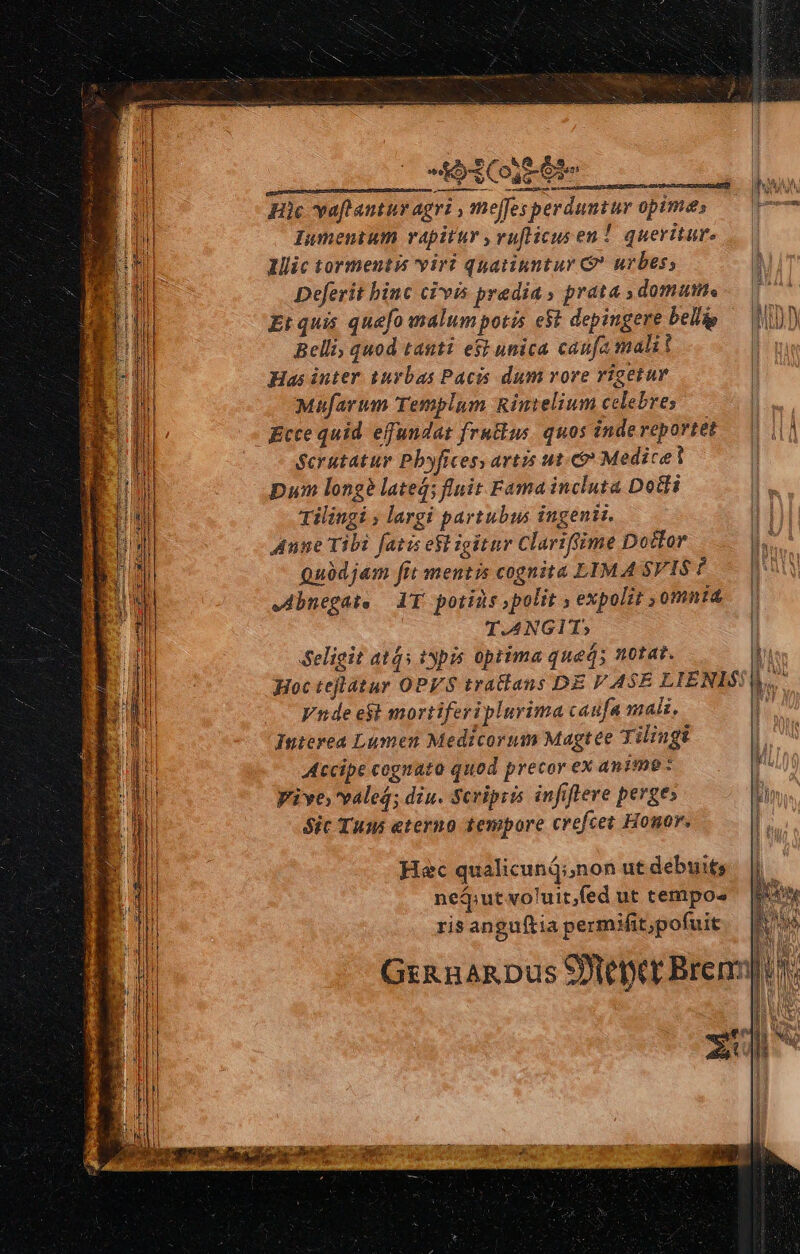 Hic vaſtantur agri, meſſes perduntur opimæ,
Iumentum rapitur, ruſticus en! queritur.
Illic tormentis viri quatiuntur & urbes,
Deſerit hinc civis prædia, prata, domum.
Et quis quæſo malum potis eſt depingere belli,
Belli, quod tanti eſt unica cauſa mali?
Has inter turbas Pacis dum rore rigetur
Muſarum Templum Rintelium celebre,
Ecce quid effundat fructus quos inde reportet
Scrutatur Phyſices, artis ut & Medicæ?
Dum longè lateq; fluit Fama incluta Docti
Tilingi, largi partubus ingenii.
Anne Tibi ſatis eſt igitur Clariſſime Doctor
Quòd jam ſit mentis cognita LIMA SVIS?
Abnegat. AT potiùs, polit, expolit, omnia
TANGIT,
Seligit atq; typis optima quæq; notat.
Hoc teſtatur OPVS tractans DE VASE LIENIS:
Vnde eſt mortiferi plurima cauſa mali.
Interea Lumen Medicorum Magtee Tilingi
Accipe cognato quod precor ex animo:
Vive, valeq; diu. Scriptis inſiſtere perge,
Sic Tuus æterno tempore creſcet Honor.
Hæc qualicunq;, non ut debuit,
neq; ut voluit, ſed ut tempo-
ris anguſtia permiſit, poſuit
GERHARDUS Meyer Brem